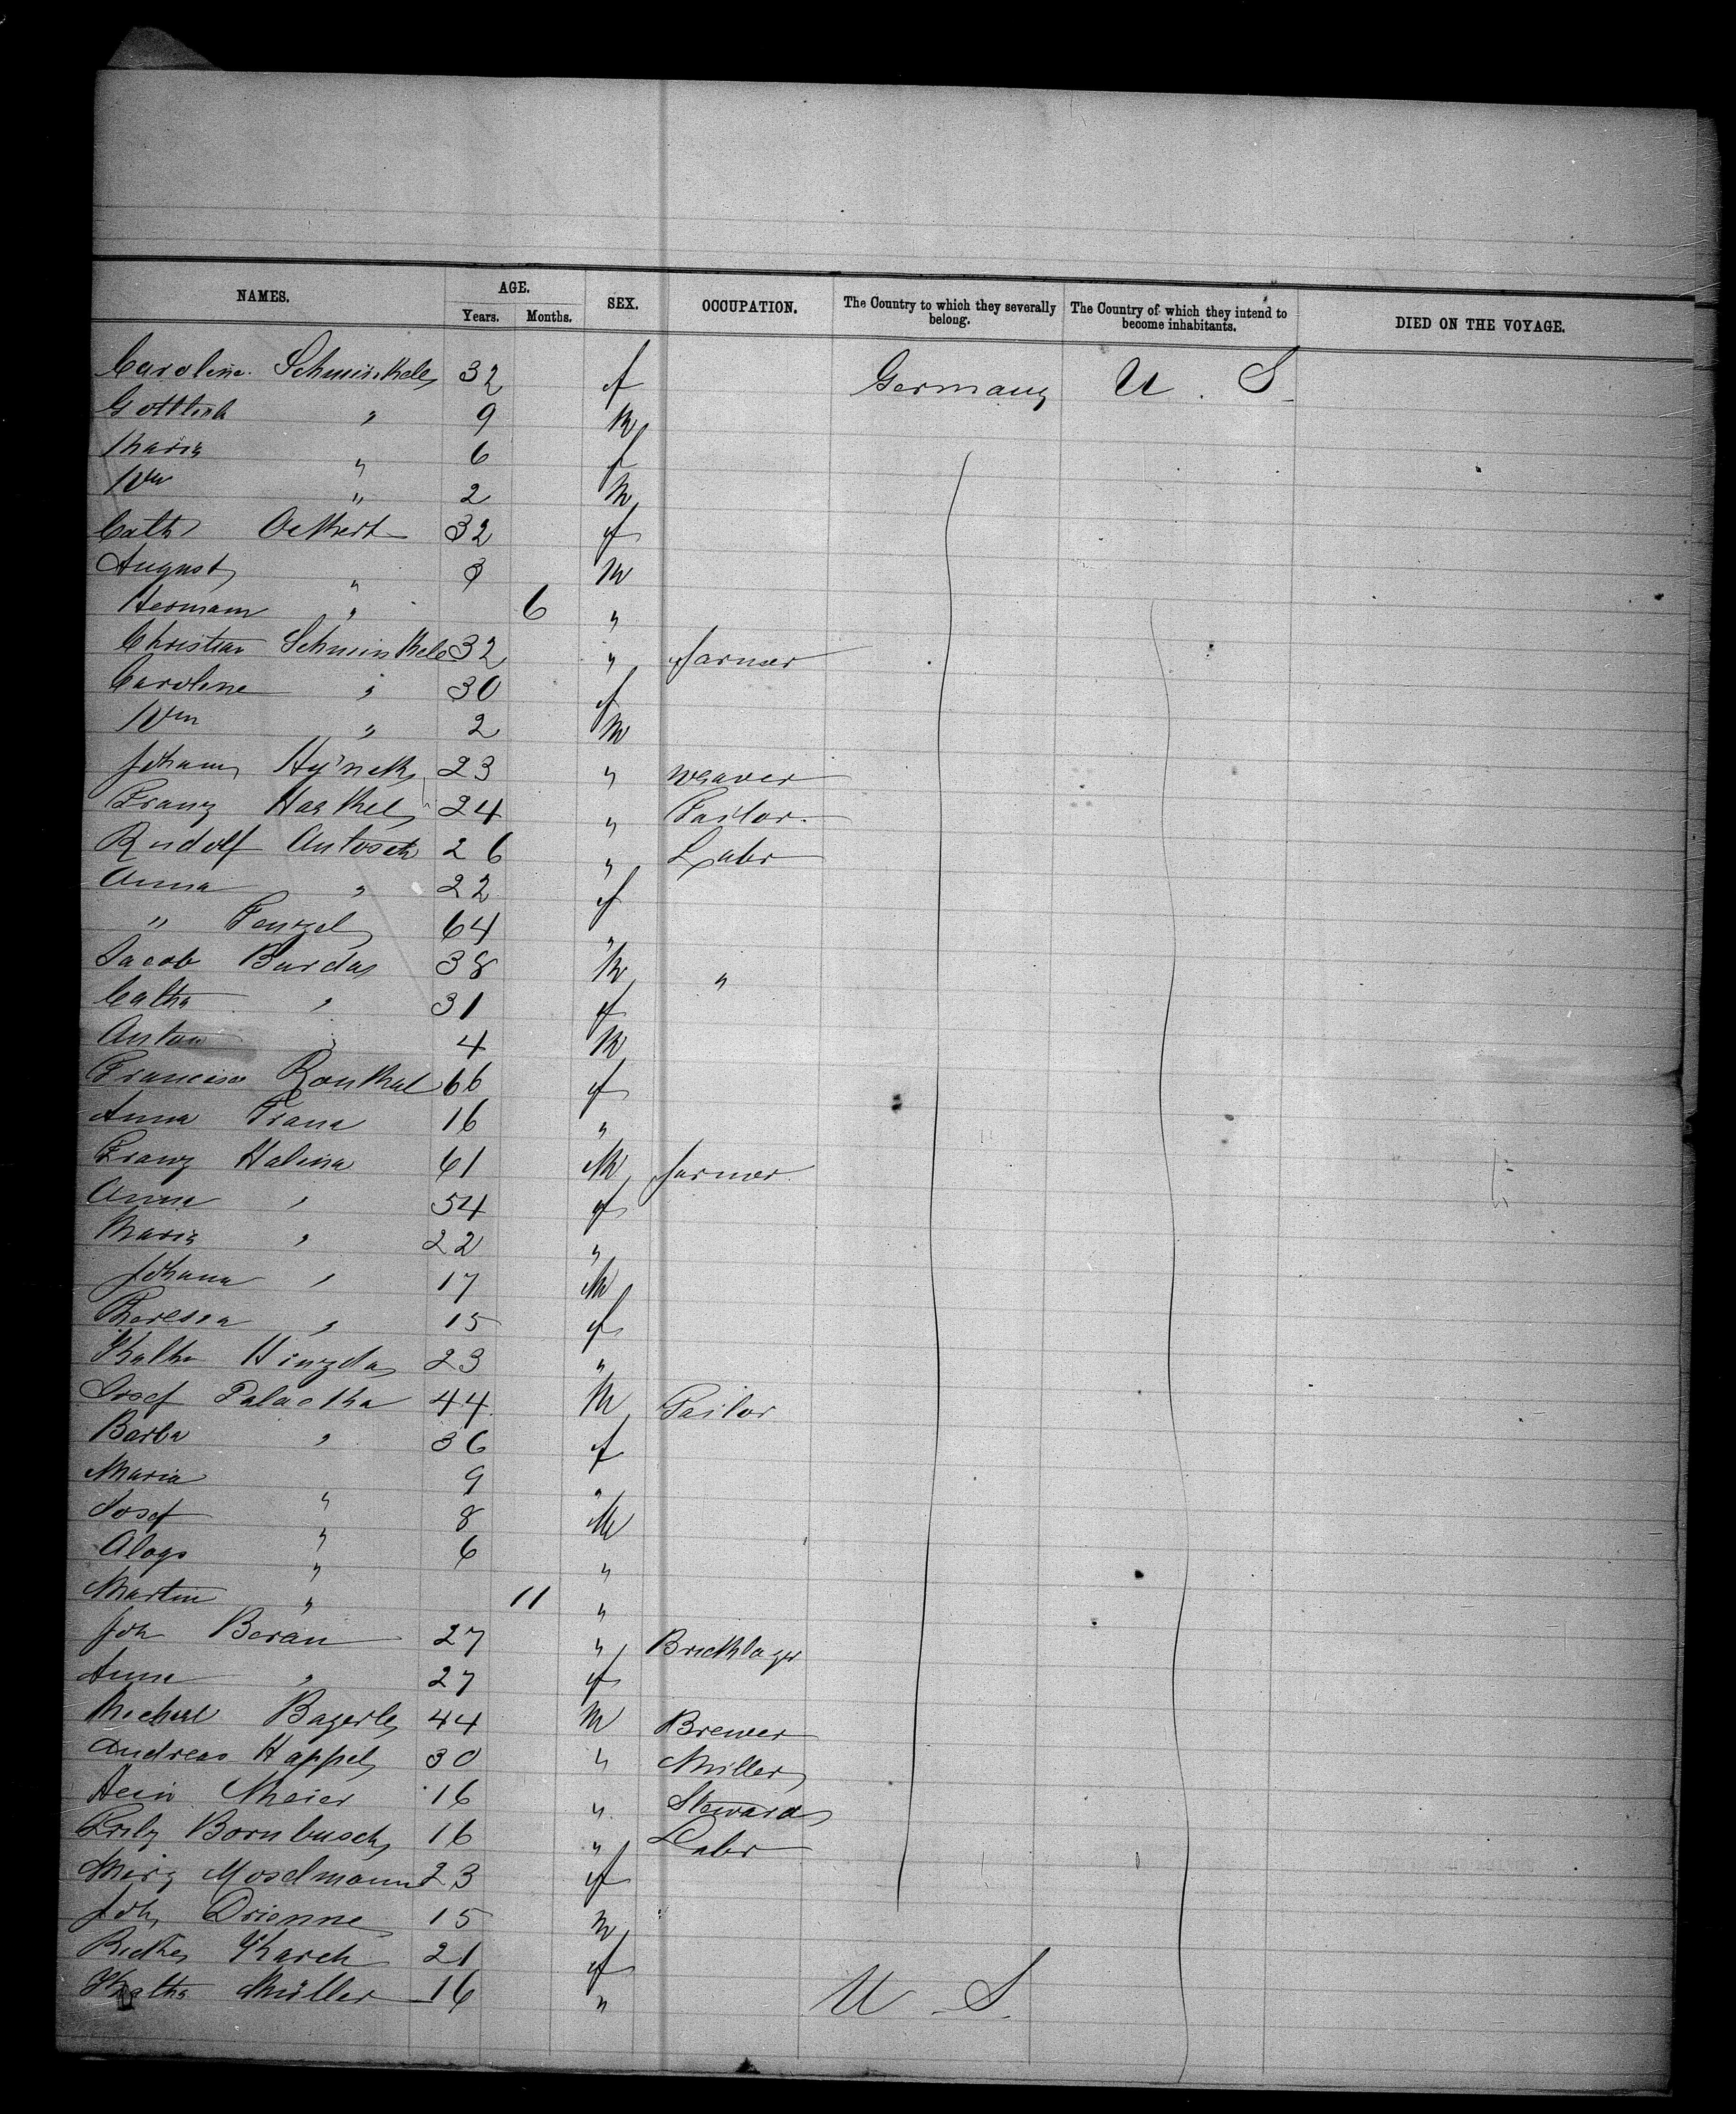 NAMES. AGE. SEX. OCCUPATION. The Country to which they severally belong. The Country of which they intend to become inhabitants. DIED ON THE VOYAGE.
Years. Months.
Caroline 32 f Germany U. S.
Gottlieb " 9 M
Maria " 6 f
Wm " 2 M
Cath 32 f
August " 3 M
Hermann " 6 "
Christian 32 " farmer
Caroline " 30 f
Wm " 2 M
Johann Hynek 23 " weaver
Franz 24 " Tailor
Rudolf Antosch 26 " Labr
Anna " 22 f
" Tenzel 64 "
Jacob Burda 38 M "
Catha " 31 f
Anton " 4 M
Francisca 66 f
Anna Frana 16 "
Franz Halina 61 M farmer
Anna " 54 f
Maria " 22 "
Johann " 17 M
Theresia " 15 f
Katha 23 "
Josef 44 M Tailor
Barba " 36 f
Maria " 9 "
Josef " 8 M
Aloys " 6 "
Martin " 11 "
Joh Beran 27 " Bricklayer
Anna " 27 f
Michael Bayerle 44 M Brewer
Andreas Happel 30 " Miller
Hein Meier 16 " Steward
Fritz Bornbusch 16 " Labr
Moselmann 23 f
Joh Drienne 15 M
Karch 21 f
Katha Müller 16 " U S